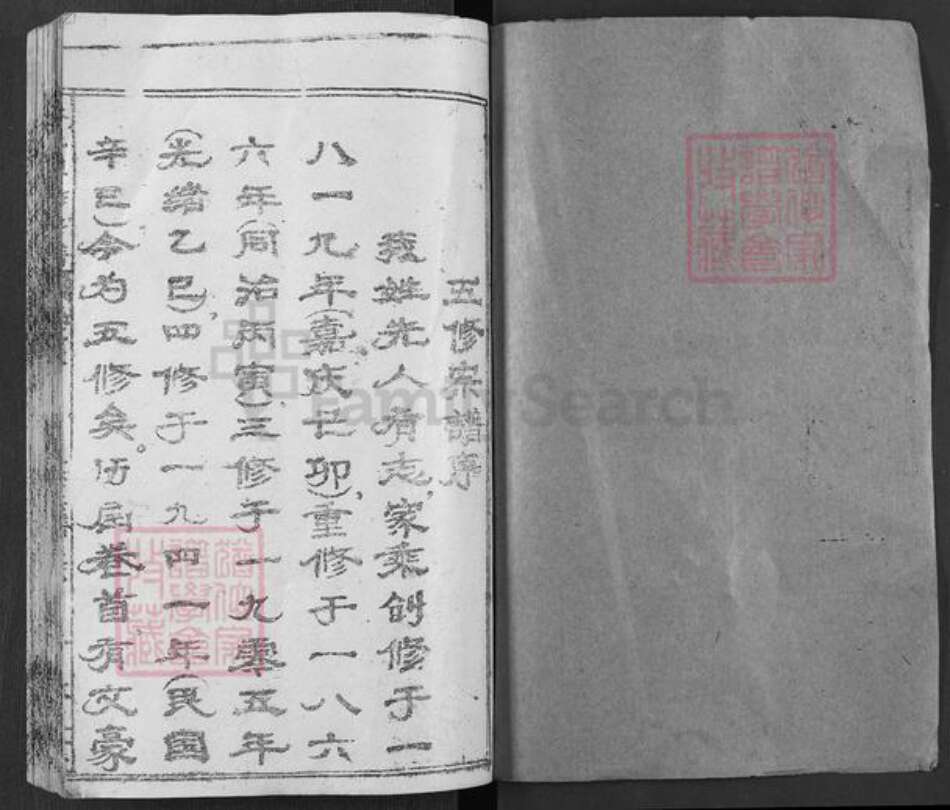 五修宗譜序
我姓先人有志,家乘创修于一
八一九年(嘉庆己卯),重修于一八六
六年(同治丙寅),三修于一九零五年
(光绪乙巳),四修于一九四一年(民国
辛巳)今为五修矣。历届卷首有文豪
FamilySearch
譜學會
特藏
譜學會
特藏